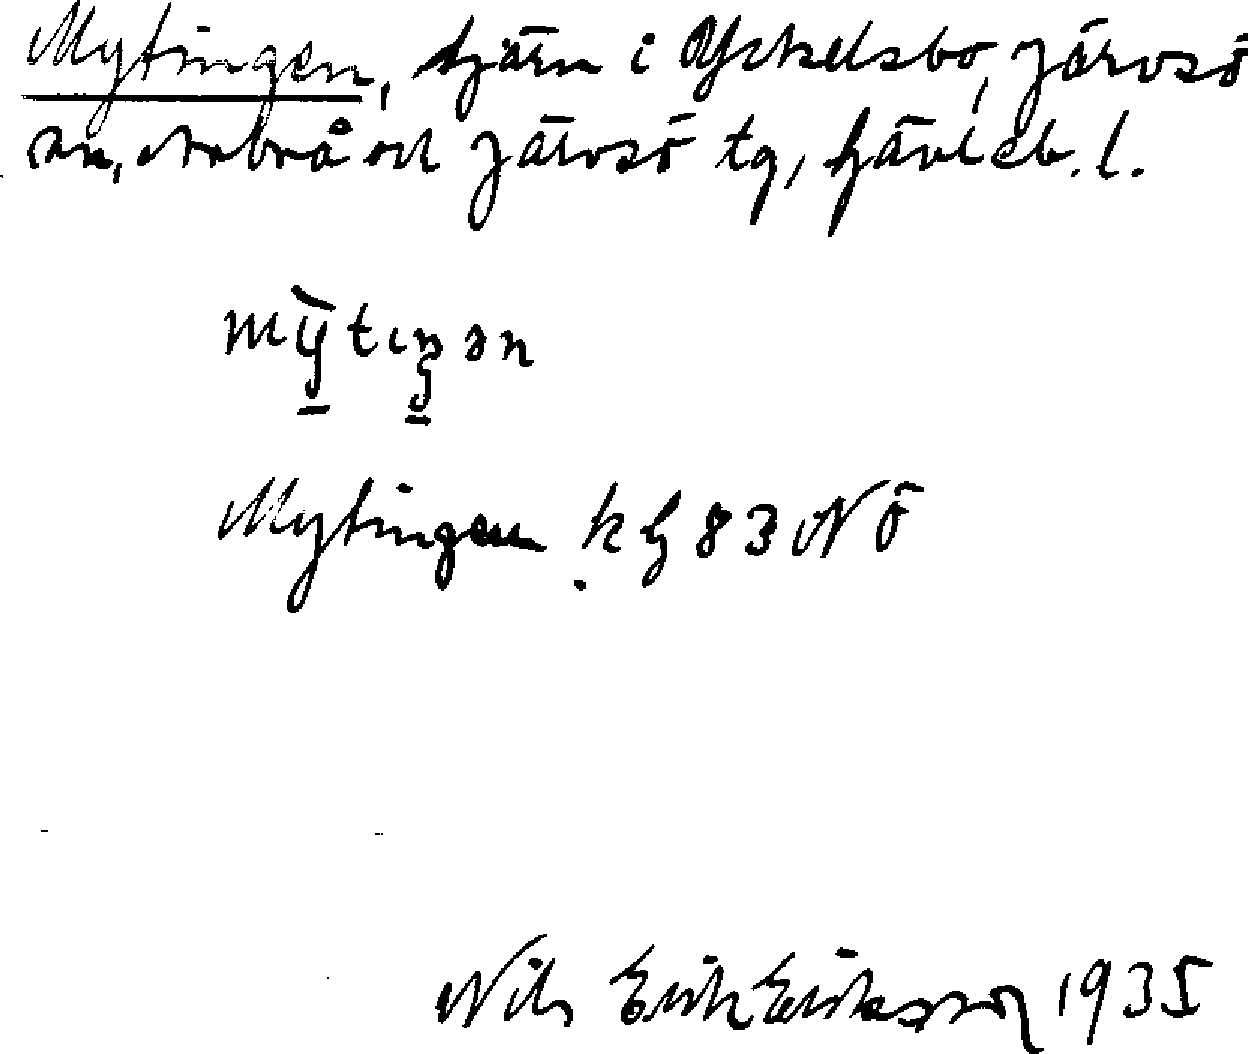 Mytingen, tjärn i Yckelsbo, Järvsö
sn, Arbrå och Järvsö tg, Gävleb. l.
mỳtıŋən
Mytingen k G 83 NÖ
Nils Erik Eriksson 1935